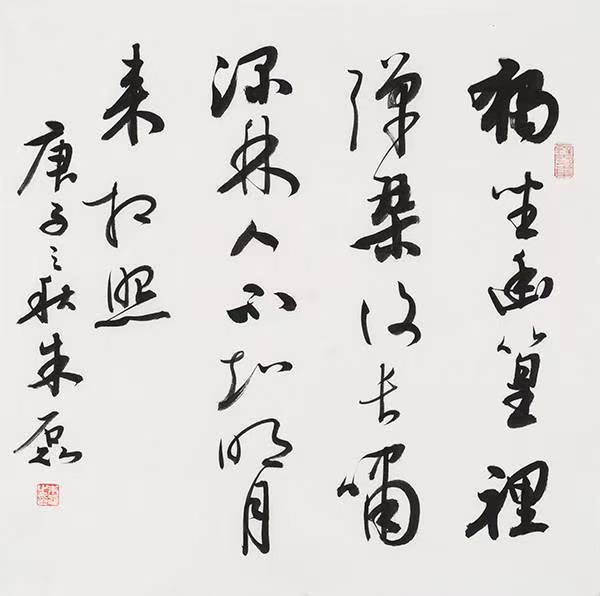 獨坐幽篁裡
彈琴復長嘯
深林人不知明月
来相照
庚子之秋朱磊